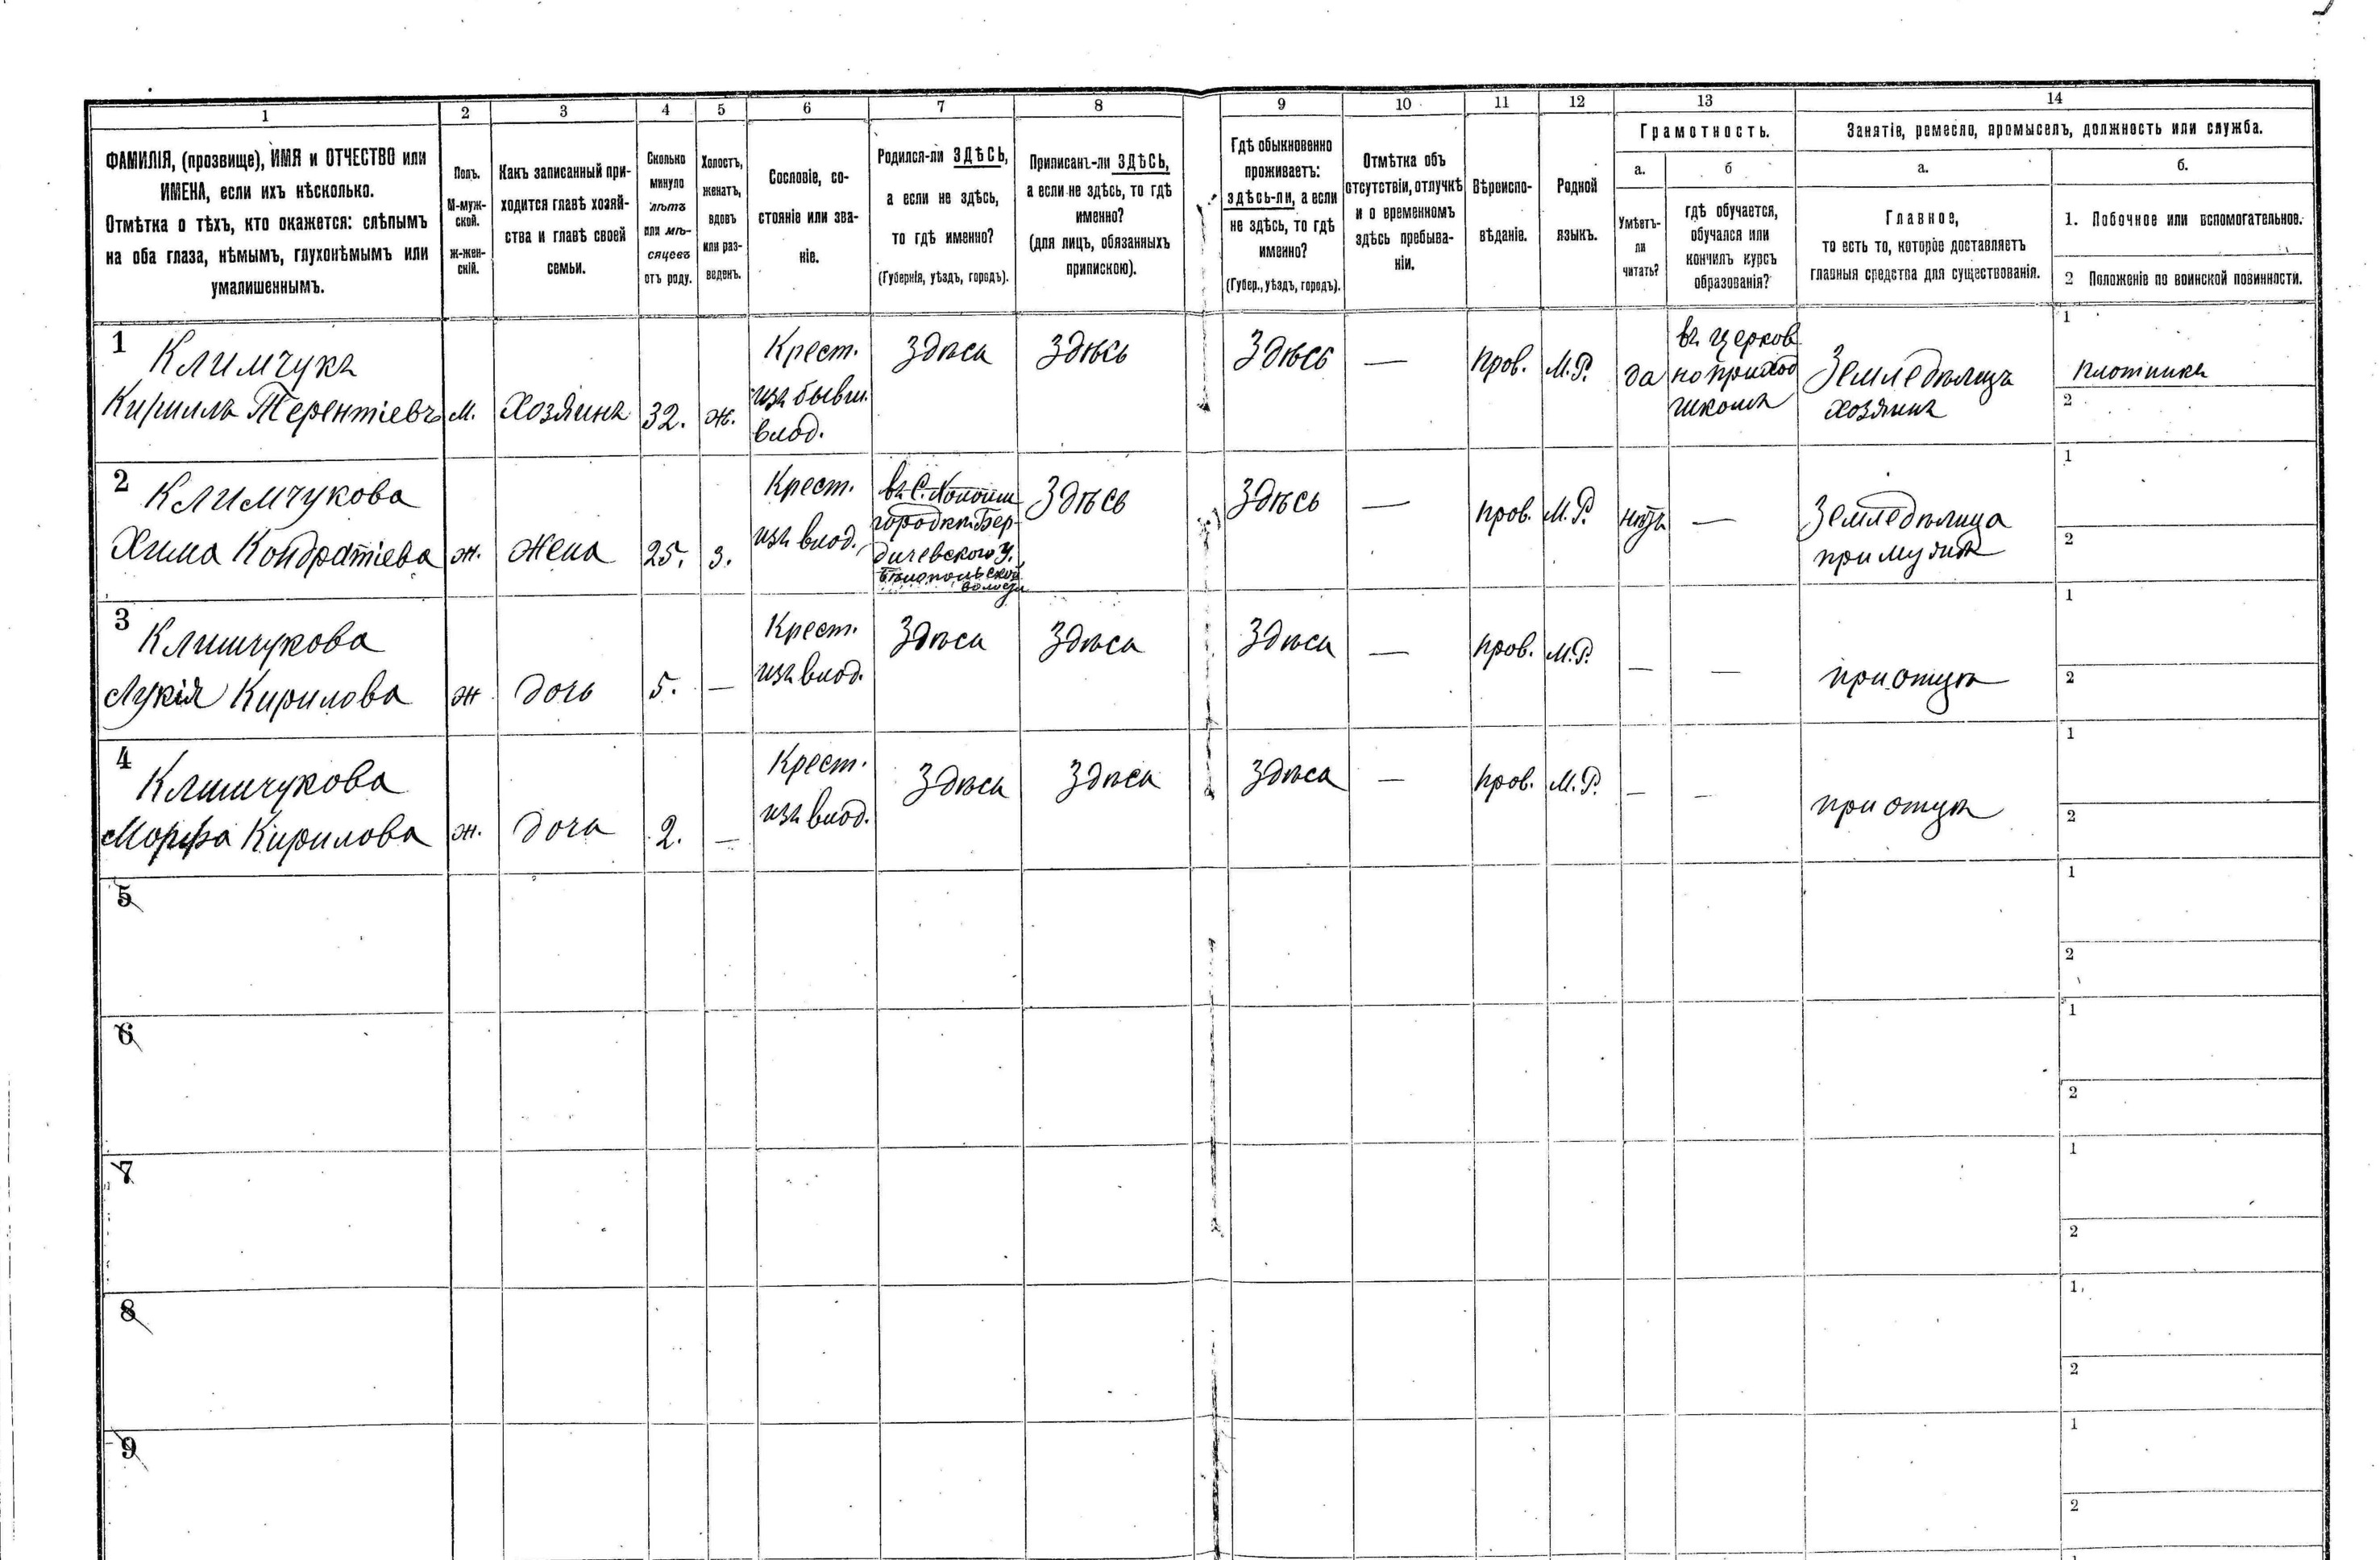 1
2
3
4
5
6
7
8
9
10
11
12
13
14
ФАМИЛІЯ, (прозвище), ИМЯ и ОТЧЕСТВО или
ИМЕНА, если ихъ нѣсколько.
Отмѣтка о тѣхъ, кто окажется: слѣпымъ
на оба глаза, нѣмымъ, глухонѣмымъ или
умалишеннымъ.
Полъ.
М-муж-
ской.
ж-жен-
скій.
Какъ записанный при-
ходится главѣ хозяй-
ства и главѣ своей
семьи.
Сколько
минуло
лѣтъ
или мѣ-
сяцевъ
отъ роду.
Холостъ,
женатъ,
вдовъ
или раз-
веденъ.
Сословіе, со-
стояніе или зва-
ніе.
Родился-ли ЗДѢСЬ,
а если не здѣсь,
то гдѣ именно?
(Губернія, уѣздъ, городъ).
Приписанъ-ли ЗДѢСЬ,
а если не здѣсь, то гдѣ
именно?
(для лицъ, обязанныхъ
припискою).
Гдѣ обыкновенно
проживаетъ:
здѣсь-ли, а если
не здѣсь, то гдѣ
именно?
(Губер., уѣздъ, городъ).
Отмѣтка объ
отсутствіи, отлучкѣ
и о временномъ
здѣсь пребыва-
ніи.
Вѣроиспо-
вѣданіе.
Родной
языкъ.
Грамотность.
а.
Умѣетъ-
ли
читать?
б
гдѣ обучается,
обучался или
кончилъ курсъ
образованія?
Занятіе, ремесло, промыселъ, должность или служба.
а.
Главное,
то есть то, которое доставляетъ
главныя средства для существованія.
б.
1. Побочное или вспомогательное.
2 Положеніе по воинской повинности.
1
Климчукъ
Кириллъ Терентіевъ
м.
Хозяинъ
32.
ж.
Крест.
изъ бывш.
влад.
Здѣсь
Здѣсь
Здѣсь
—
прав.
М.Р.
да
въ церков
но приход
школѣ
Земледѣлецъ
хозяинъ
1
плотникъ
2
2
Климчукова
Хима Кондратіева
ж.
жена
25.
з.
Крест.
изъ влад.
городкѣ Бер-
дичевского У.
волости
Здѣсь
Здѣсь
—
прав.
М.Р.
нѣтъ
—
Земледѣлица
при мужѣ
1
2
3
Климчукова
Лукія Кирилова
ж
дочь
5.
—
Крест.
изъ влад.
Здѣсь
Здѣсь
Здѣсь
—
прав.
М.Р.
—
—
при отцѣ
1
2
4
Климчукова
Марфа Кирилова
ж.
дочь
2.
—
Крест.
изъ влад.
Здѣсь
Здѣсь
Здѣсь
—
прав.
М.Р.
—
—
при отцѣ
1
2
5
1
2
6
1
2
7
1
2
8
1
2
9
1
2